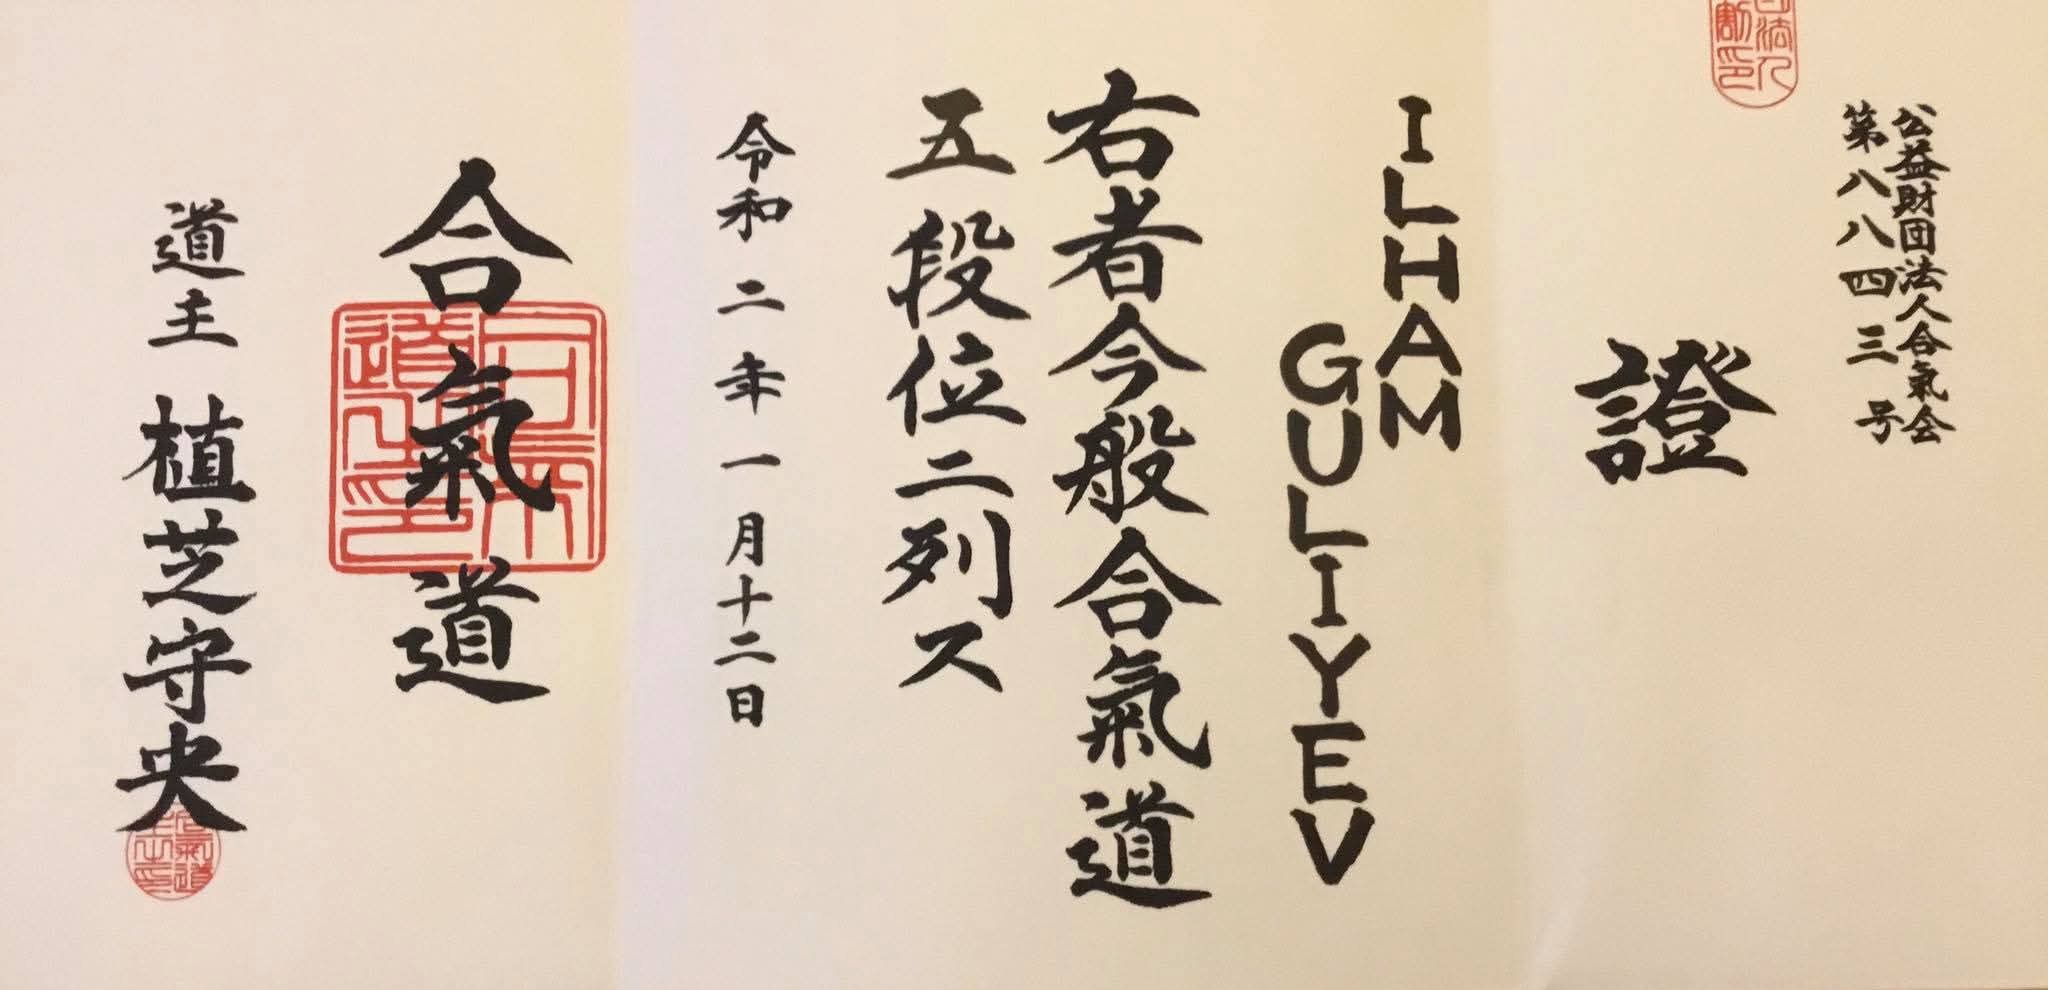 公益財団法人合氣会
第八八四三号
證
ILHAM
GULIYEV
右者今般合氣道
五段位ニ列ス
令和二年一月十二日
合氣道
道主 植芝守央